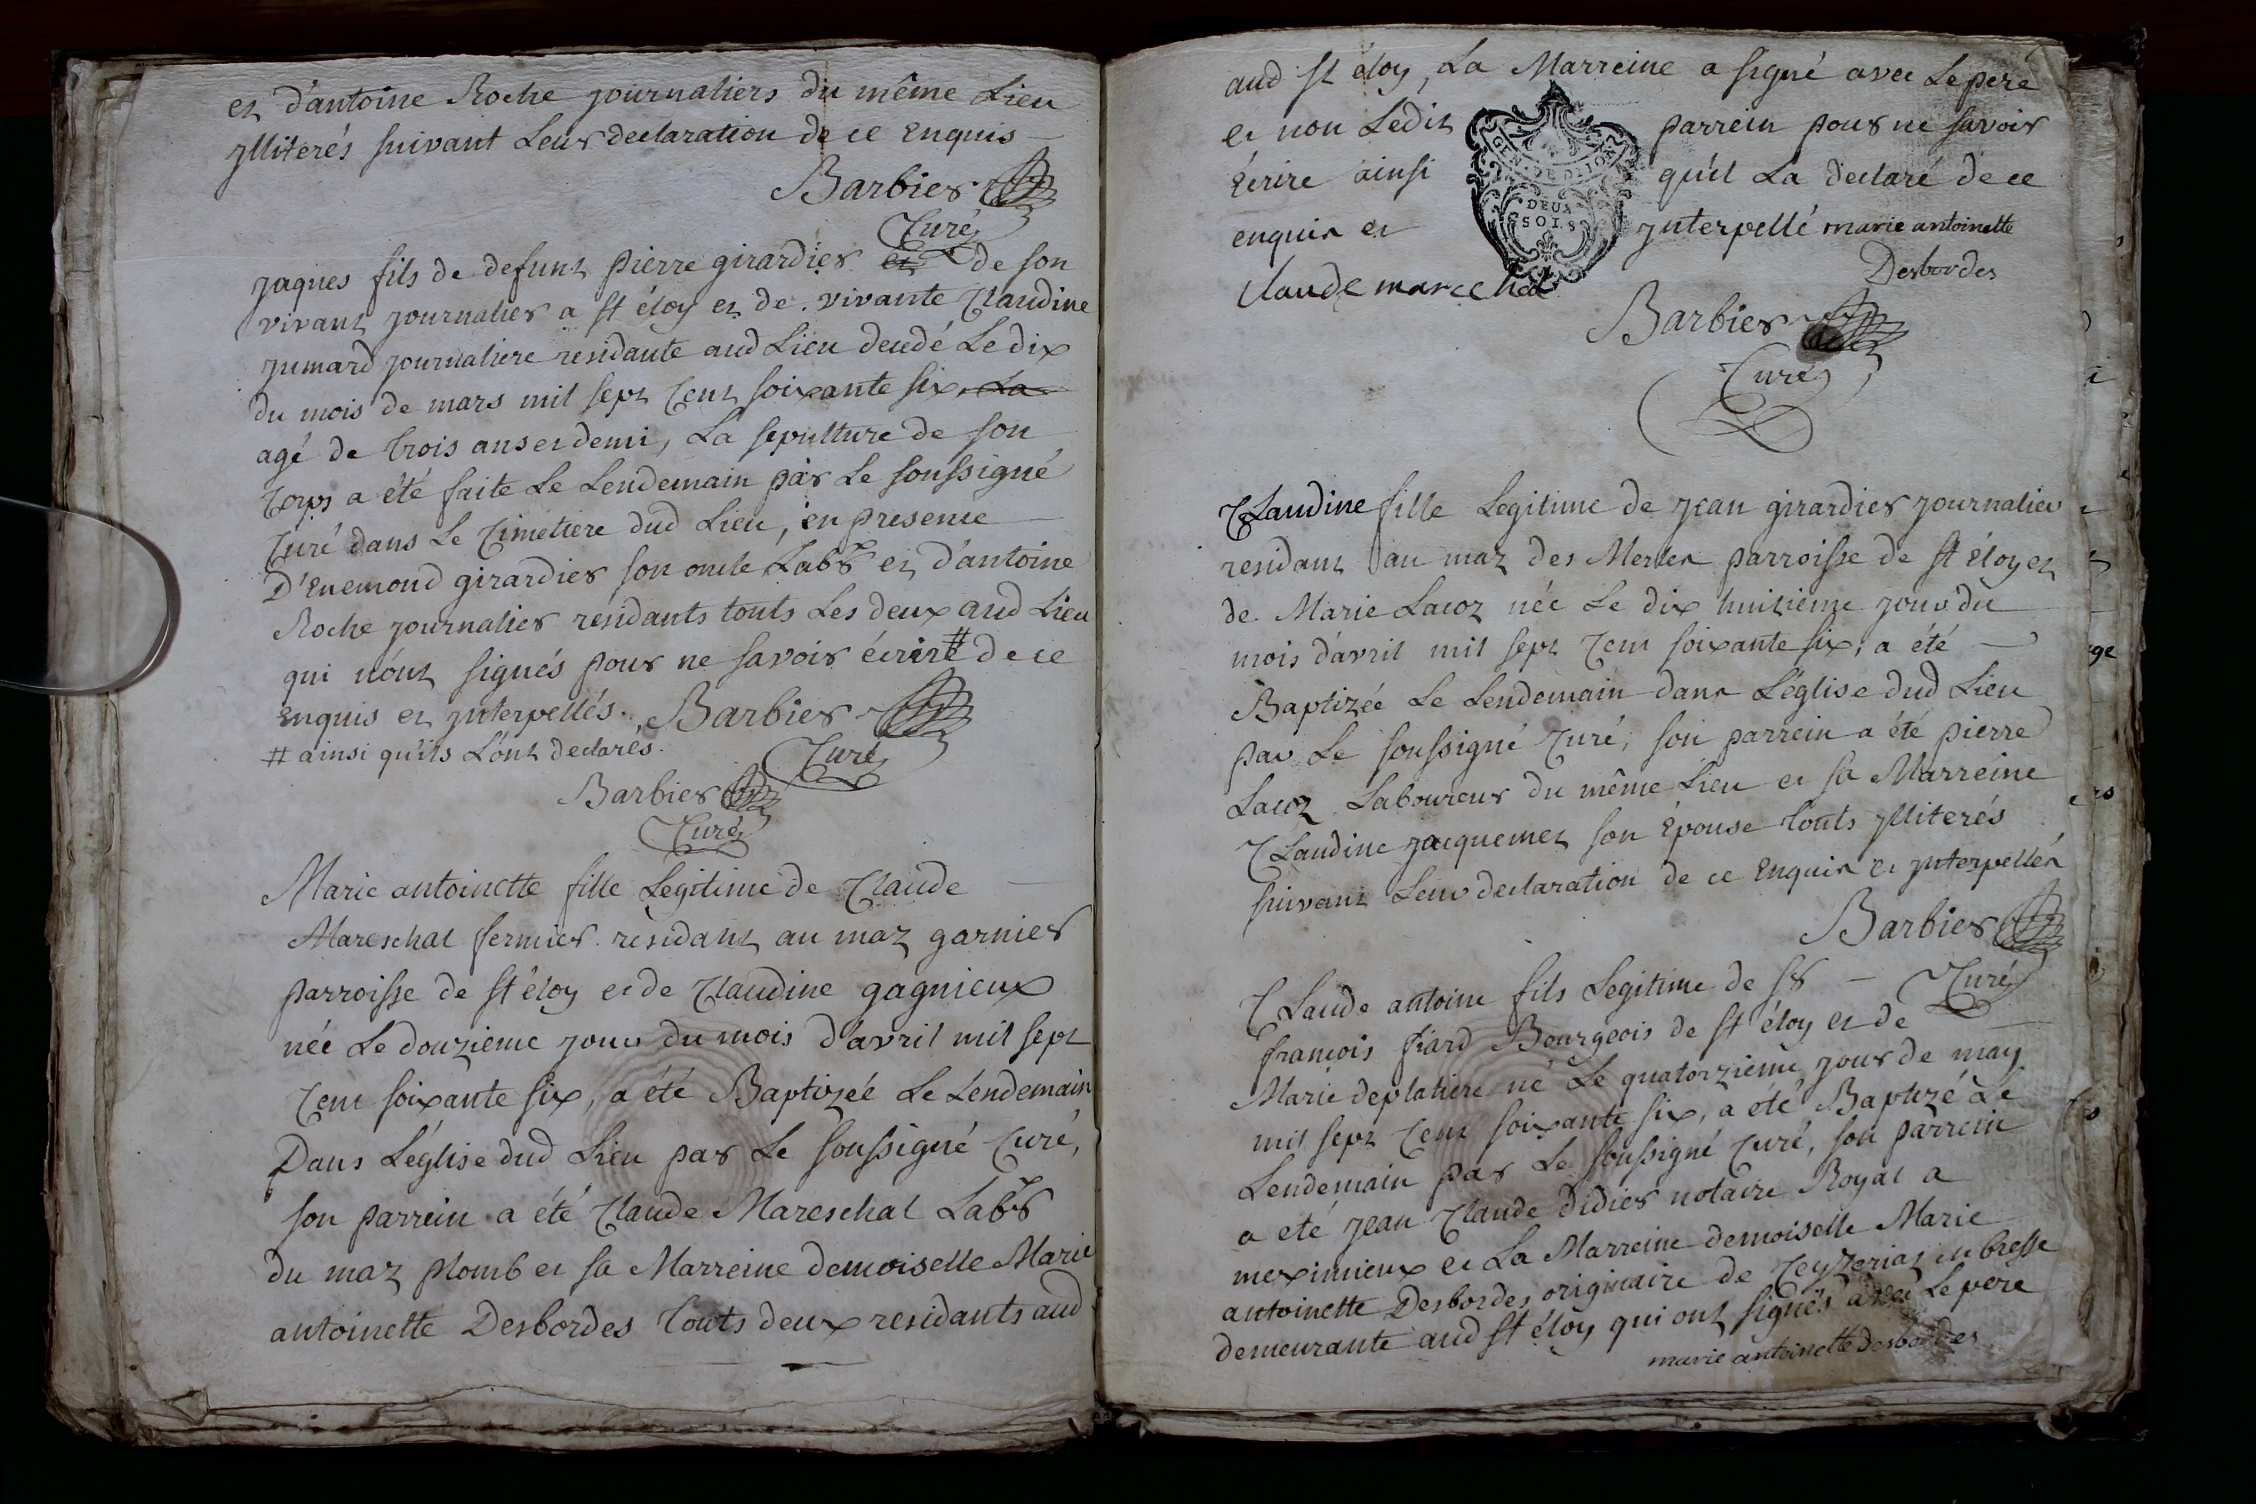 et d'antoine Roche journaliers du même Lieu
yllitérés suivant Leur declaration de ce Enquis
Barbier
Curé
jaques fils de defunt pierre girardier et de son
vivant journalier a st éloy et de vivante Claudine
jumard journaliere residante aud Lieu decedé Le dix
du mois de mars mil sept Cent soixante six La
agé de trois ans et demi, La sepulture de son
Corps a été faite Le Lendemain par Le soussigné
Curé dans Le Cimetiere dud Lieu, en presence
D'Enemond girardier son oncle Labr et d'antoine
Roche journalier residants touts Les deux aud Lieu
qui n'ont signés pour ne savoir écrire # de ce
enquis et ynterpellés. Barbier
# ainsi qu'ils L'ont declarés.
Curé
Barbier
Curé
Marie antoinette fille Legitime de Claude
Mareschal fermier residant au maz garnier
parroisse de st éloy et de Claudine gagnieux
née Le douzieme jour du mois d'avril mil sept
Cent soixante six, a été Baptizée Le Lendemain
Dans L'église dud Lieu par Le soussigné Curé,
son parrein a été Claude Mareschal Labr
du maz plomb et sa Marreine demoiselle Marie
antoinette Desbordes touts deux residants aud
aud st éloy, La Marreine a signé avec Le pere
et non Ledit parrein pour ne savoir
Ecrire ainsi qu'il La declaré de ce
enquis et ynterpellé marie antoinette
Desbordes
GEN. DE DIJON
DEUX
SOLS
Claude marechal
Barbier
Curé
Claudine fille Legitime de jean girardier journalier
residant au maz des Merles parroisse de st éloy et
de Marie Lacoz née Le dix huitieme jour du
mois d'avril mil sept Cent soixante six, a été
Baptizée Le Lendemain dans L'église dud Lieu
par Le soussigné Curé, son parrein a été pierre
Lacoz Laboureur du même Lieu et sa Marreine
Claudine jacquemet son Epouse touts yllitérés
suivant Leur declaration de ce Enquis et ynterpellés
Barbier
Curé
Claude antoine fils Legitime de sr
françois fiard Bourgeois de st éloy et de
Marie deplatiere né Le quatorzieme jour de may
mil sept Cent soixante six, a été Baptizé Le
Lendemain par Le soussigné Curé, son parrein
a eté jean Claude Didier notaire Royal a
meximieux et La Marreine demoiselle Marie
antoinette Desbordes originaire de Ceyzeriat en bresse
demeurante aud st éloy qui ont signés avec Le pere
marie antoinette desbordes